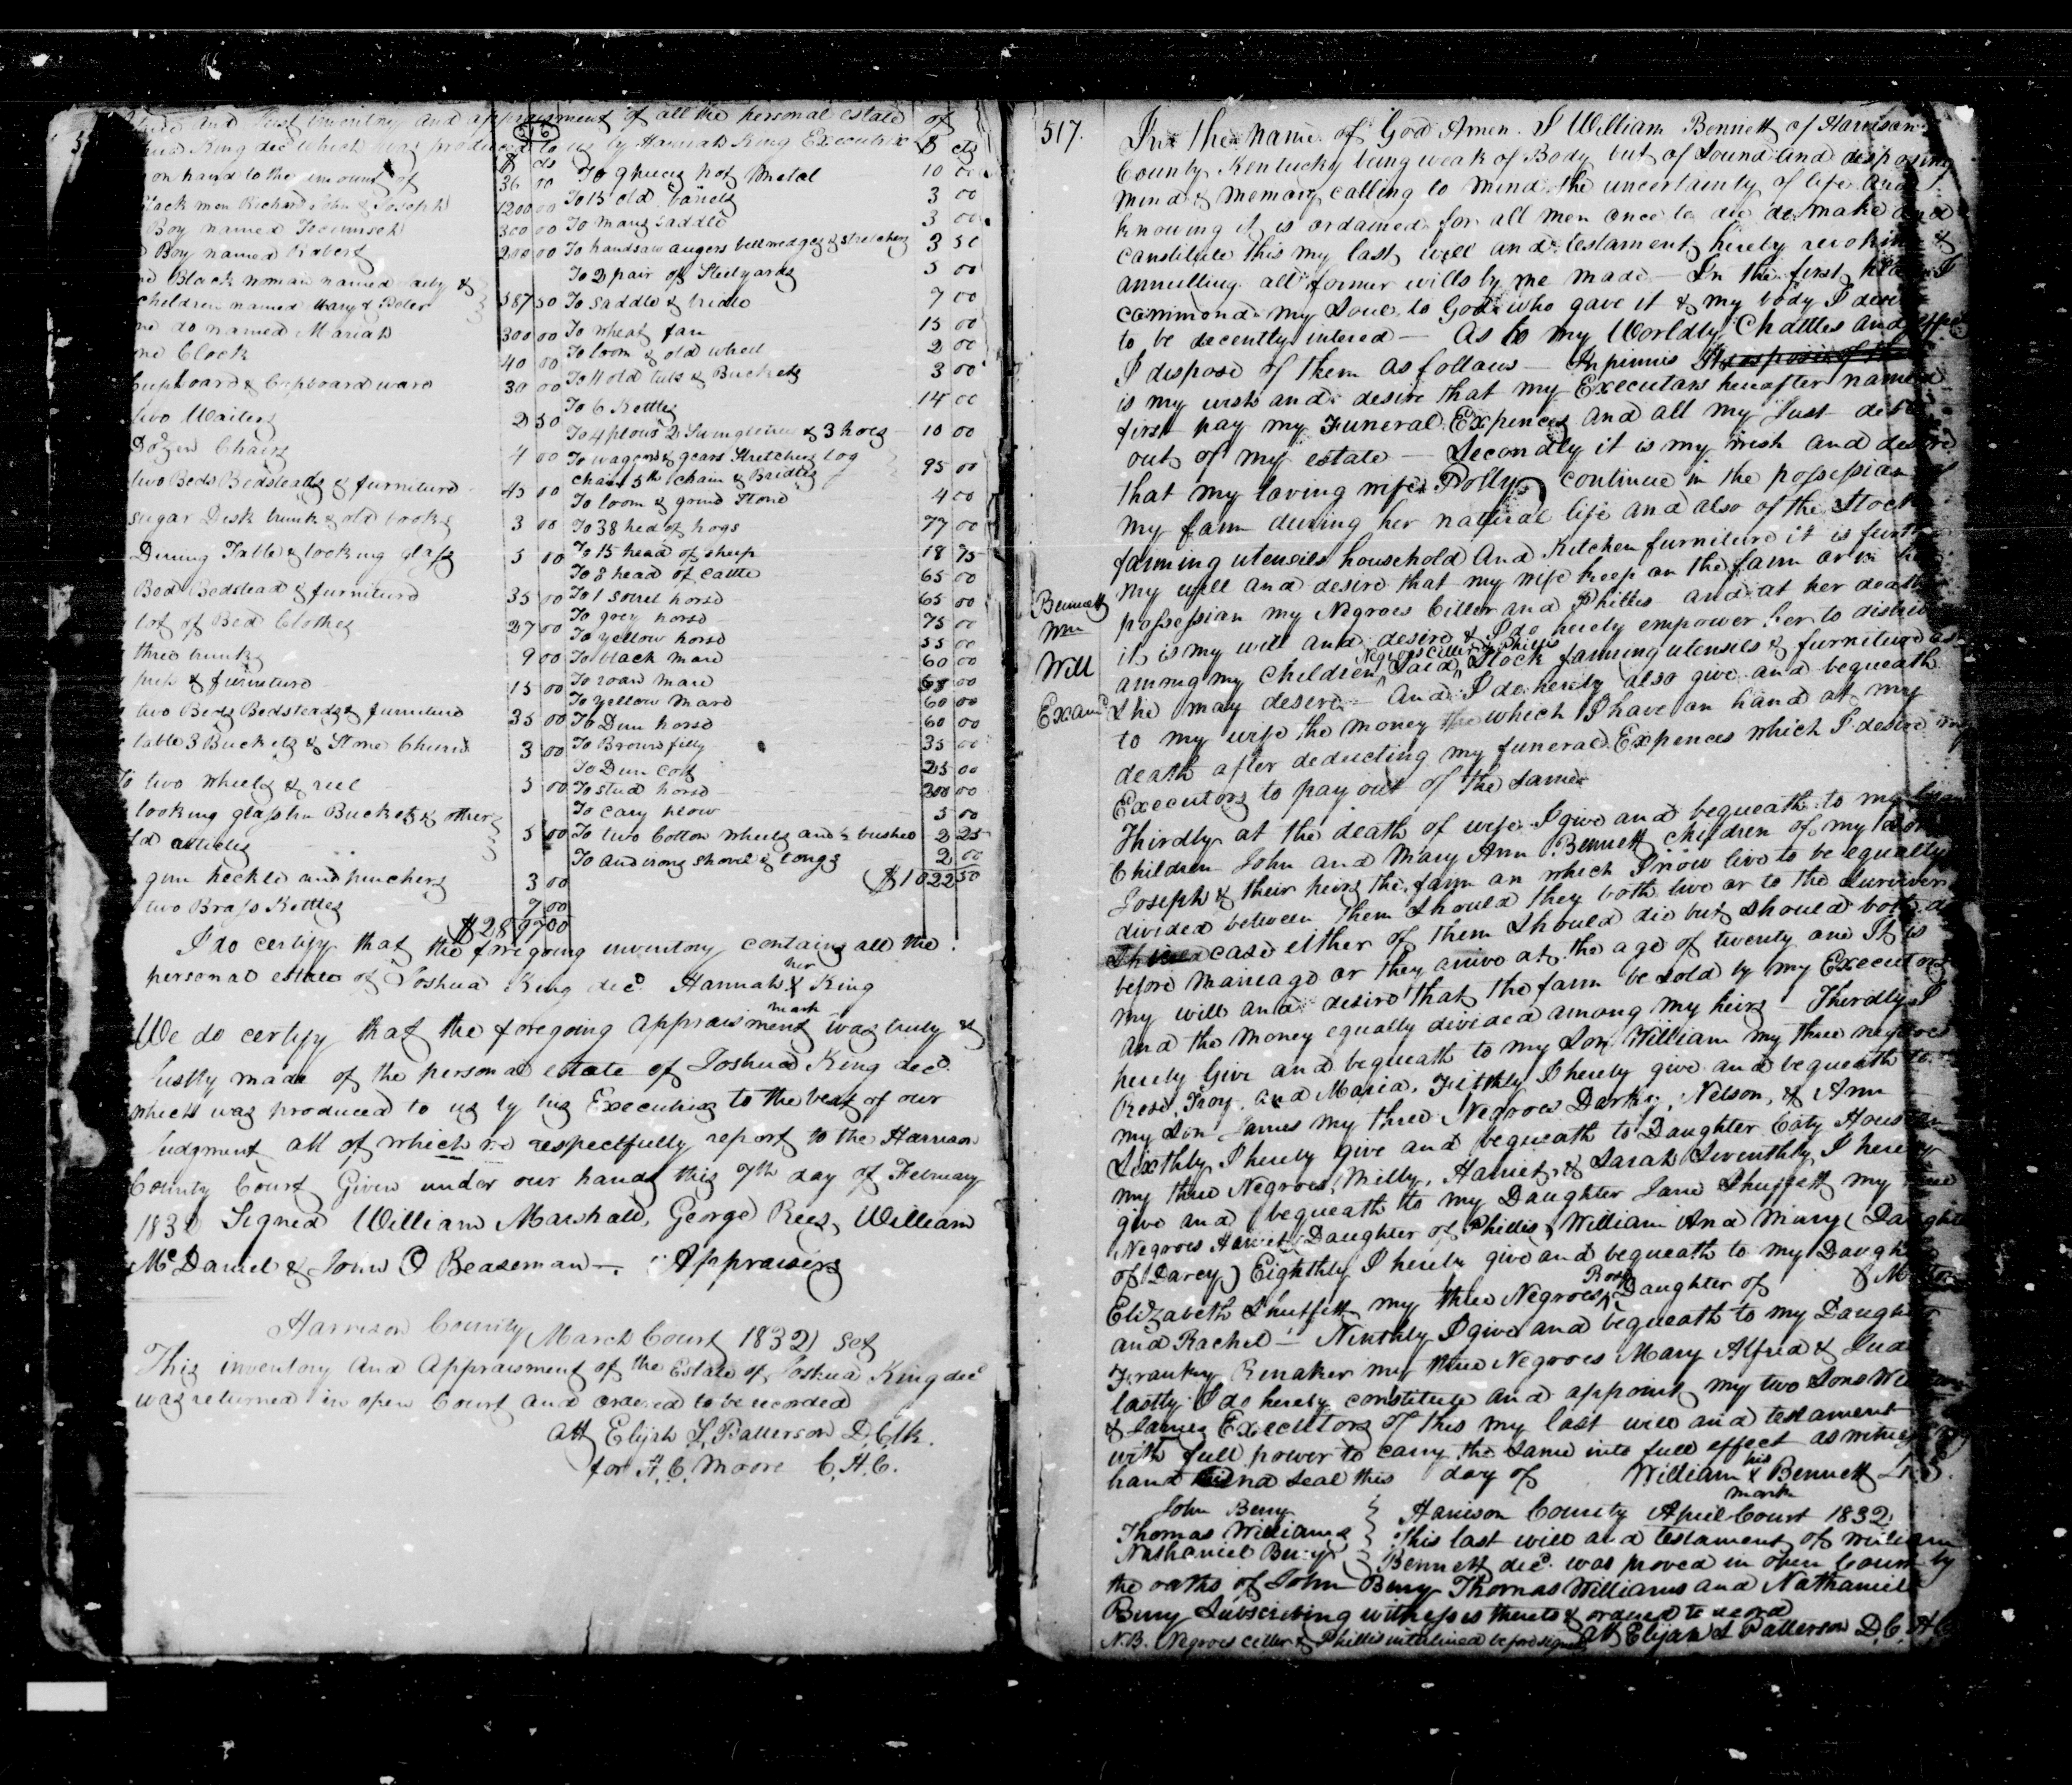 and Just Inventory and appraisment of all the personal estate of
King dec'd which was produced to us by Hannah King Executrix
516
$ cts
on hand to the amount of 36 00
Black men Richard John & Joseph 1200 00
Boy named Tecumseh 300 00
Boy named Robert 200 00
Black woman named &
children named Mary & Peter 587 50
do named Mariah 300 00
one Clock 40 00
Cupboard & Cupboard ware 30 00
two Waiters 2 50
Dozen Chairs 4 00
two Beds Bedsteads & furniture 45 00
sugar Desk trunk & old books 3 00
Dining Table & looking glass 5 00
Bed Bedstead & furniture 35 00
lot of Bed Clothes 27 00
three trunks 9 00
press & furniture 15 00
two Beds Bedsteads & furniture 35 00
table 3 Buckets & Stone Churn 3 00
To two wheels & reel 5 00
looking glass tin Buckets & other
old articles 5 00
gun heckle and pinchers 3 00
two Brass Kettles 7 00
$2897 00
$ cts
To 9 pieces pot Metal 10 00
To 15 old barrels 3 00
To mans saddle 3 00
To handsaw augers bell wedges & stretchers 3 50
To 2 pair of Steelyards 5 00
To saddle & bridle 7 00
To wheat fan 15 00
To loom & old wheel 2 00
To 11 old tubs & Buckets 3 00
To 6 Kettles 14 00
To 4 plows 2 Swingletrees & 3 hoes 10 00
To wagon & gears Stretchers log
chain 5th chain & Bridles 95 00
To loom & grind Stone 4 00
To 38 head of hogs 77 00
To 15 head of sheep 18 75
To 8 head of Cattle 65 00
To 1 sorrel horse 65 00
To grey horse 75 00
To yellow horse 55 00
To black mare 60 00
To roan mare 00
To yellow Mare 60 00
To Dun horse 60 00
To Brown filly 35 00
To Dun Colt 25 00
To stud horse 200 00
To cary plow 5 00
To two Cotton wheels and ½ bushel 2 25
To andirons shovel & tongs 2 00
$1022 50
I do certify that the foregoing inventory contains all the
personal estate of Joshua King dec'd. Hannah her X mark King
We do certify that the foregoing appraisment was truly &
Justly made of the personal estate of Joshua King dec'd.
which was produced to us by his Executrix to the best of our
Judgment all of which we respectfully report to the Harrison
County Court Given under our hands this 7th day of February
1832 Signed William Marshall, George Rees, William
McDaniel & John O Beaseman —. Appraisers
Harrison County March Court 1832 Set
This inventory and Appraisment of the Estate of Joshua King dec'd
was returned in open Court and ordered to be recorded
Att Elijah L. Patterson D.Clk.
for H. C. Moore C.H.C.
517.
In the name of God Amen. I William Bennett of Harrison
County Kentucky being weak of Body but of Sound and disposing
mind & memory calling to mind the uncertainty of life and
knowing it is ordained for all men once to die do make and
constitute this my last will and testament hereby revoking &
annulling all former wills by me made — In the first place I
commend my Soul to God who gave it & my body I desire
to be decently intered — As to my Worldly Chattles and effects
I dispose of them as follows — Inpinus It
is my wish and desire that my Executors hereafter named
first pay my Funeral Expences and all my Just debts
out of my estate — Secondly it is my wish and desire
that my loving wife Polly continue in the possession of
my farm during her natural life and also of the Stock
farming utensils household and Kitchen furniture it is further
my will and desire that my wife keep on the farm or in her
possession my Negroes Ciller and Phillis and at her death
it is my will and desire & I do hereby empower her to distribute
among my Children Said Negroes Ciller & Phillis Stock farming utensils & furniture as
She may desire — And I do hereby also give and bequeath
to my wife the money which I have on hand at my
death after deducting my funeral Expences which I desire my
Executors to pay out of the Same
Bennett
Wm
Will
Exam'd
Thirdly at the death of wife I give and bequeath to my
Children John and Mary Ann Bennett Children of my Son
Joseph & their heirs the farm on which I now live to be equally
divided between them Should they both live or to the Surviver
case either of them Should die but should both die
before Mariage or they arive at the age of twenty one It is
my will and desire that the farm be Sold by my Executors
and the Money equally divided among my heirs — Thirdly I
hereby Give and bequeath to my Son William my three negroes
Rose, Troy, and Maria. Fifthly I hereby give and bequeath to
my Son James my three Negroes Darky, Nelson, & Ann
Sixthly I hereby give and bequeath to Daughter Caty Houston
my three Negroes, Milly, Hariet, & Sarah Seventhly I hereby
give and bequeath to my Daughter Jane Shuffett my three
Negroes Hariet (Daughter of Phillis) William And Mary (Daughter
of Darcy) Eighthly I hereby give and bequeath to my Daughter
Elizabeth Shuffett my three Negroes Rose Daughter of
and Rachel — Ninthly I give and bequeath to my Daughter
Franky Renaker my three Negroes Mary Alfred & Jude
lastly I do hereby constitute and appoint my two Sons William
& James Executors of this my last will and testament
with full power to carry the Same into full effect as witness my
hand and Seal this day of William his X mark Bennett L.S.
John Berry
Thomas Williams
Nathaniel Berry
Harrison County April Court 1832
This last will and testament of William
Bennett dec'd. was proved in open Court by
the oaths of John Berry Thomas Williams and Nathaniel
Berry Subscribing witnesses thereto & ordered to record
N.B. Negroes Ciller & Phillis interlined before signed Att Elijah L Patterson D.C.H.C.